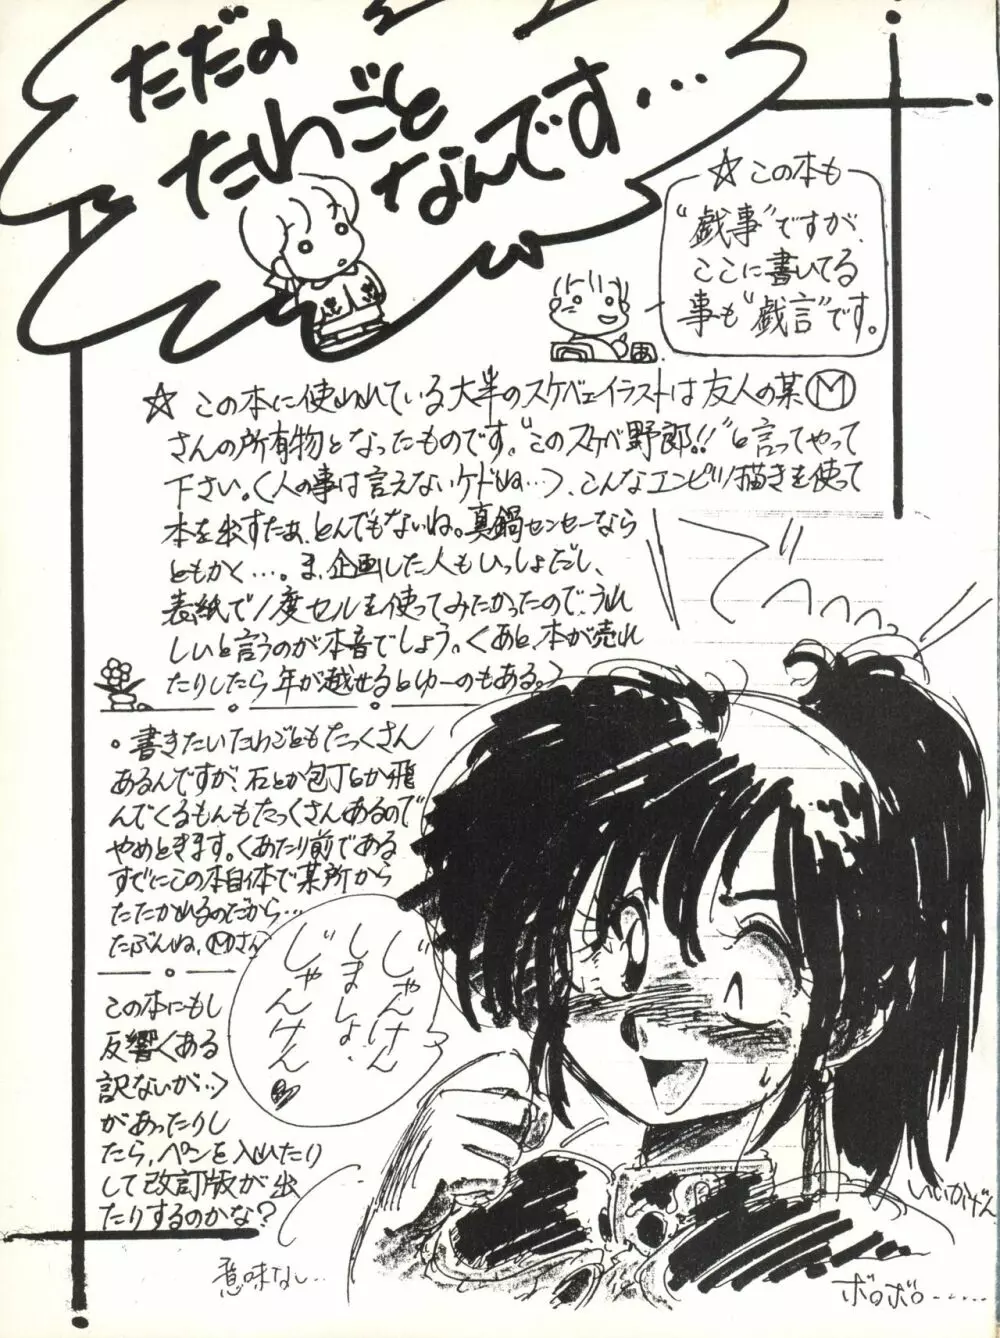 ただの
たわごと
なんです…
☆この本も
“戯事”ですが、
ここに書いてる
事も“戯言”です。
あ
☆ この本に使われている大半のスケベェイラストは友人の某Ⓜ
さんの所有物となったものです。“このスケベ野郎!!”と言ってやって
下さい。く人の事は言えないケドね…＞、こんなエンピツ描きを使って
本を出すたぁ、とんでもないね。真鍋センセーなら
ともかく…。ま、企画した人もいっしょだし、
表紙で1度セルを使ってみたかったので、うれ
しいと言うのが本音でしょう。＜あと、本が売れ
たりしたら年が越せるとゆーのもある。＞
・書きたいたわごともたっくさん
あるんですが、石とか包丁とか飛
んでくるもんもたっくさんあるので
やめときます。＜あたり前である
すぐにこの本自体で某所から
たたかれるのだから…
たぶんね、Ⓜさん
じゃんけん
しましょ、
じゃんけん♥
この本にもし
反響＜ある
訳ないが…＞
があったりし
たら、ペンを入れたり
して改訂版が出
たりするのかな?
意味なし…
いいかげん
ボロボロ……